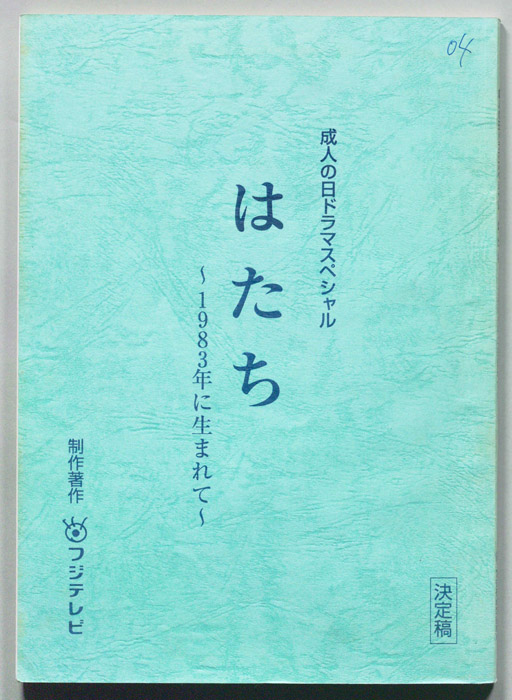 04
成人の日ドラマスペシャル
はたち
～1983年に生まれて～
制作著作 フジテレビ
決定稿